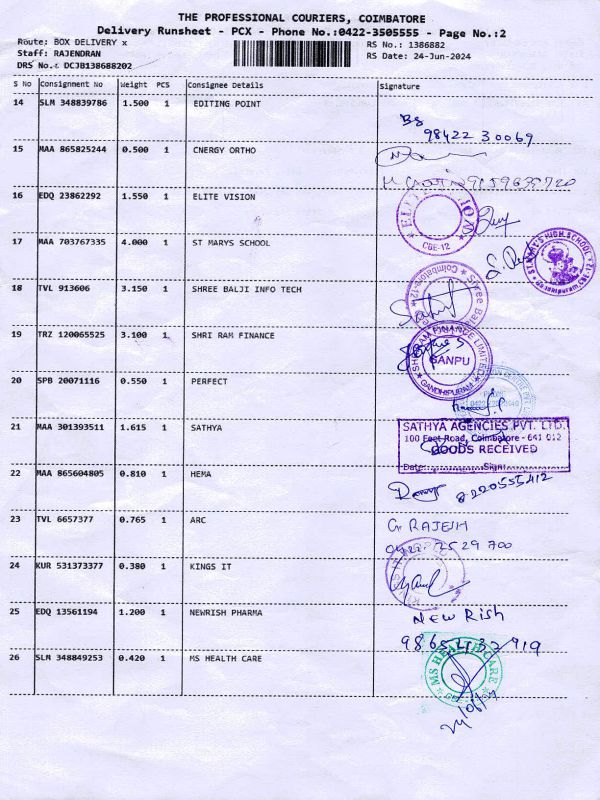 THE PROFESSIONAL COURIERS, COIMBATORE
Delivery Runsheet - PCX - Phone No.:0422-3505555 - Page No.:2
Route: BOX DELIVERY x
Staff: RAJENDRAN
DRS No.: DCJB138688202
RS No.: 1386882
RS Date: 24-Jun-2024
S No Consignment No. Weight PCS Consignee Details Signature
14 SLM 348839786 1.500 1 EDITING POINT
BS
98422 30069
15 MAA 865825244 0.500 1 CNERGY ORTHO
16 EDQ 23862292 1.550 1 ELITE VISION
CBE-12
17 MAA 703767335 4.000 1 ST MARYS SCHOOL
ST. MARY'S HIGH SCHOOL
18 TVL 913606 3.150 1 SHREE BALJI INFO TECH
Coimbatore-12
19 TRZ 120065525 3.100 1 SHRI RAM FINANCE
SHRIRAM FINANCE LIMITED
GANPU
GANDHIPURAM
20 SPB 20071116 0.550 1 PERFECT
21 MAA 301393511 1.615 1 SATHYA
SATHYA AGENCIES PVT. LTD.
100 Feet Road, Coimbatore - 641 012
GOODS RECEIVED
Date: Sign:
22 MAA 865604805 0.810 1 HEMA
23 TVL 6657377 0.765 1 ARC
G RAJESH
0422 2529 700
24 KUR 531373377 0.380 1 KINGS IT
25 EDQ 13561194 1.200 1 NEWRISH PHARMA
NEW Rish
26 SLM 348849253 0.420 1 MS HEALTH CARE
MS HEALTH CARE